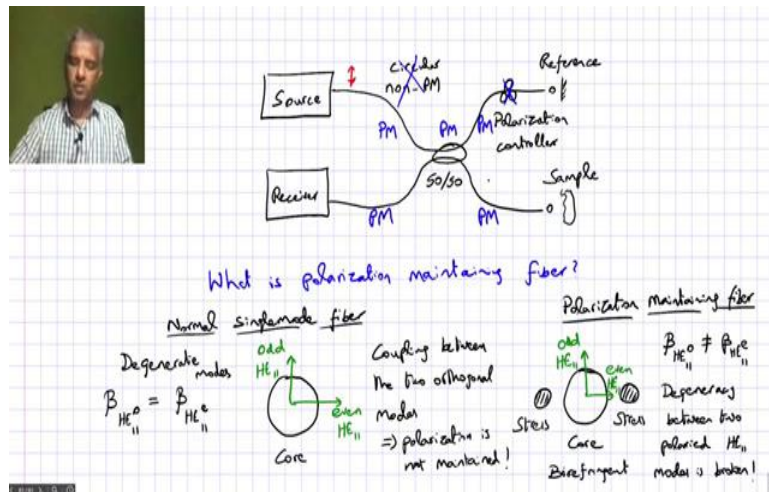 Source
circular
non-PM
Reference
PM
PM
PM
Polarization
controller
50/50
Sample
Receiver
PM
PM
What is polarization maintaining fiber?
Normal singlemode fiber
Degenerate
modes
β HE₁₁ᵒ = β HE₁₁ᵉ
odd
HE₁₁
even
HE₁₁
Core
Coupling between
the two orthogonal
modes
⇒ polarization is
not maintained!
Polarization maintaining fiber
odd
HE₁₁
even
HE₁₁
Stress
Stress
Core
Birefringent
β HE₁₁ᵒ ≠ β HE₁₁ᵉ
Degeneracy
between two
polaried HE₁₁
modes is broken!